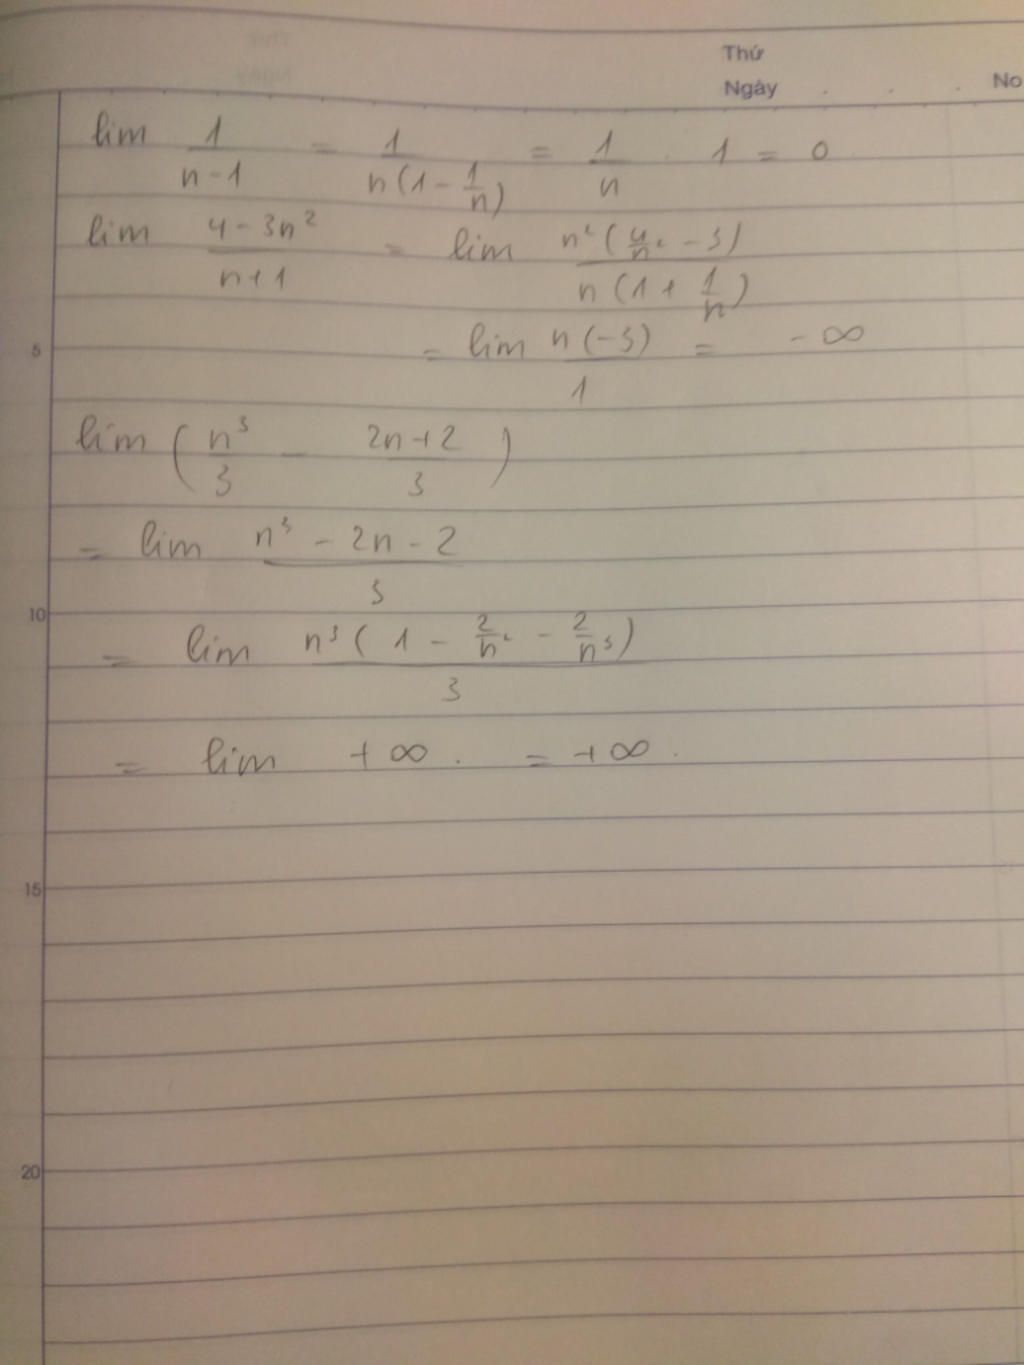 Thứ
Ngày . . . No
lim 1/(n-1) = 1/(n(1 - 1/n)) = 1/n . 1 = 0
lim (4 - 3n²)/(n+1) = lim n²(4/n² - 3)/(n(1 + 1/n))
5
= lim n(-3)/1 = -∞
lim (n³/3 - (2n+2)/3)
= lim (n³ - 2n - 2)/3
10
= lim n³(1 - 2/n² - 2/n³)/3
= lim +∞ . = +∞ .
15
20